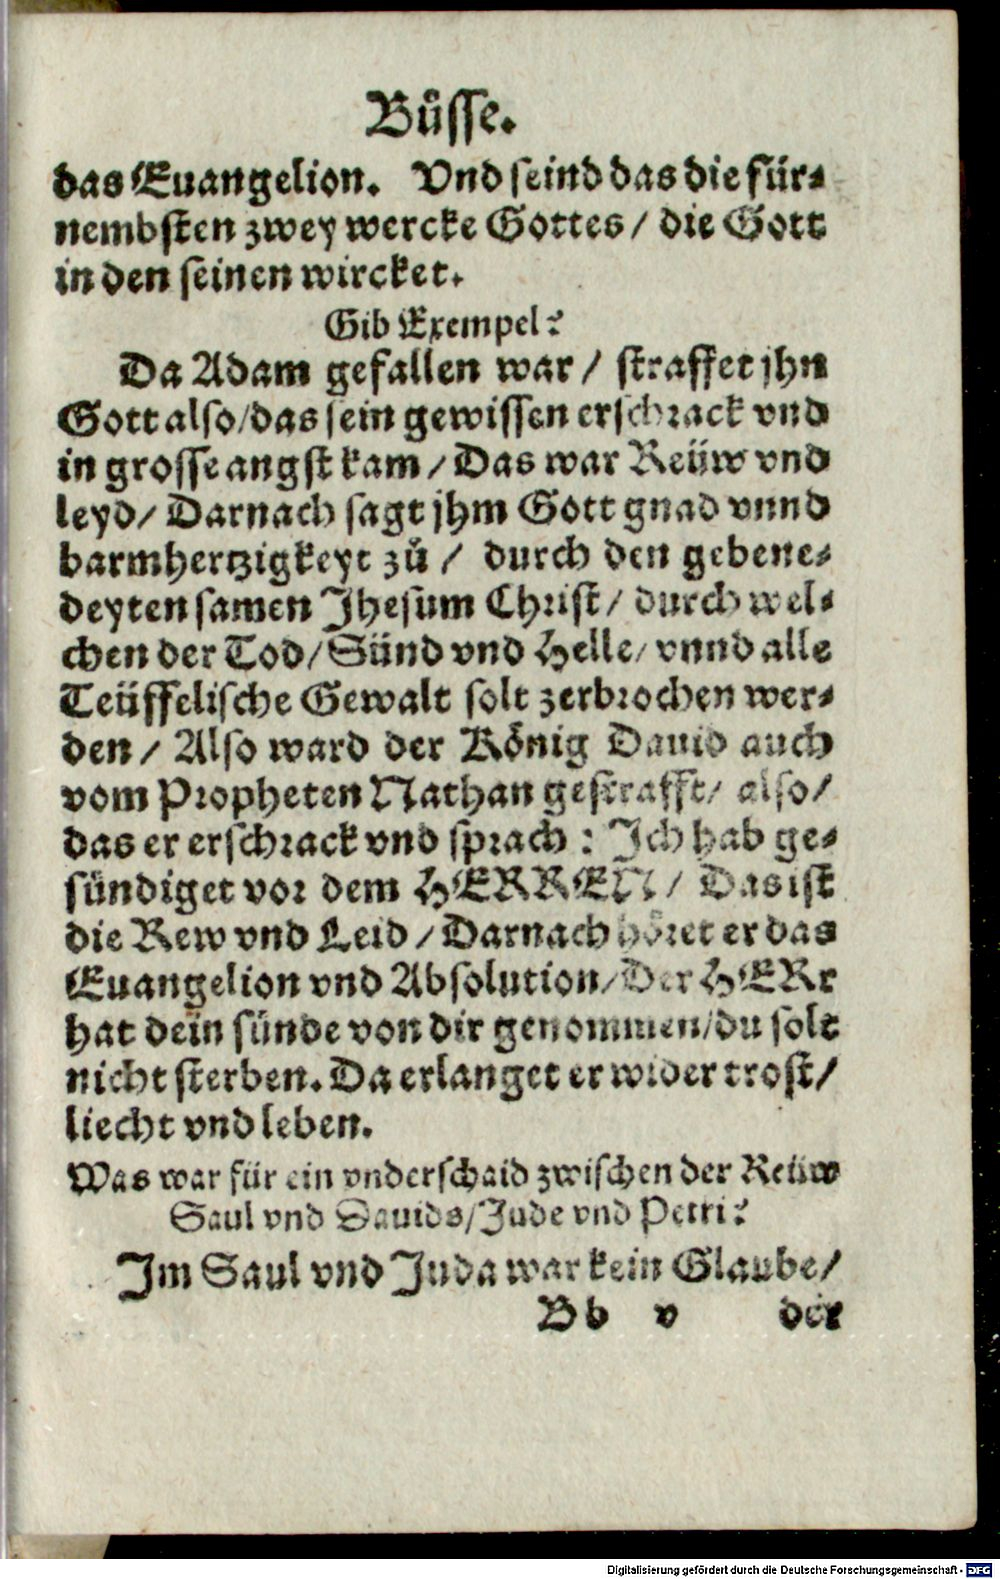 Bůsse.
das Euangelion. Vnd seind das die für⸗
nembsten zwey wercke Gottes / die Gott
in den seinen wircket.
Gib Exempel?
Da Adam gefallen war / straffet jhn
Gott also/das sein gewissen erschrack vnd
in grosse angst kam / Das war Reüw vnd
leyd/ Darnach sagt jhm Gott gnad vnnd
barmhertzigkeyt zů / durch den gebene⸗
deyten samen Jhesum Christ/ durch wel⸗
chen der Tod/Sünd vnd Helle/ vnnd alle
Teüffelische Gewalt solt zerbrochen wer⸗
den / Also ward der König Dauid auch
vom Propheten Nathan gestrafft/ also/
das er erschrack vnd sprach : Ich hab ge⸗
sündiget vor dem HERREN/ Das ist
die Rew vnd Leid / Darnach höret er das
Euangelion vnd Absolution/Der HERr
hat dein sünde von dir genommen/du solt
nicht sterben. Da erlanget er wider trost/
liecht vnd leben.
Was war für ein vnderschaid zwischen der Reüw
Saul vnd Dauids/Jude vnd Petri?
Im Saul vnd Juda war kein Glaube/
B b v der
Digitalisierung gefördert durch die Deutsche Forschungsgemeinschaft - DFG